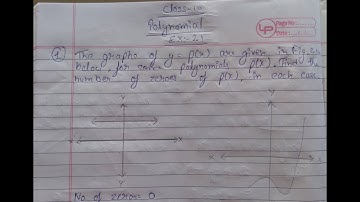 Class-10
Polynomial
Ex-2.1
Page No.:
Date:
1 The graphs of y = p(x) are given in fig. 2.10
below, for some polynomials p(x). Find the
number of zeroes of p(x), in each case.
Y
X
X
Y'
No. of zeroes = 0